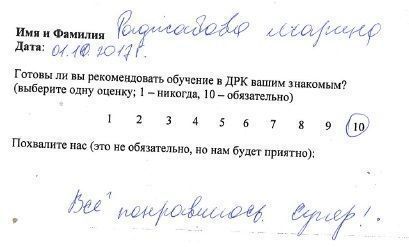 Имя и Фамилия Раджабова Марина
Дата: 01.10.2017г.
Готовы ли вы рекомендовать обучение в ДРК вашим знакомым?
(выберите одну оценку; 1 – никогда, 10 – обязательно)
1 2 3 4 5 6 7 8 9 10
Похвалите нас (это не обязательно, но нам будет приятно):
Всё понравилось. Супер!